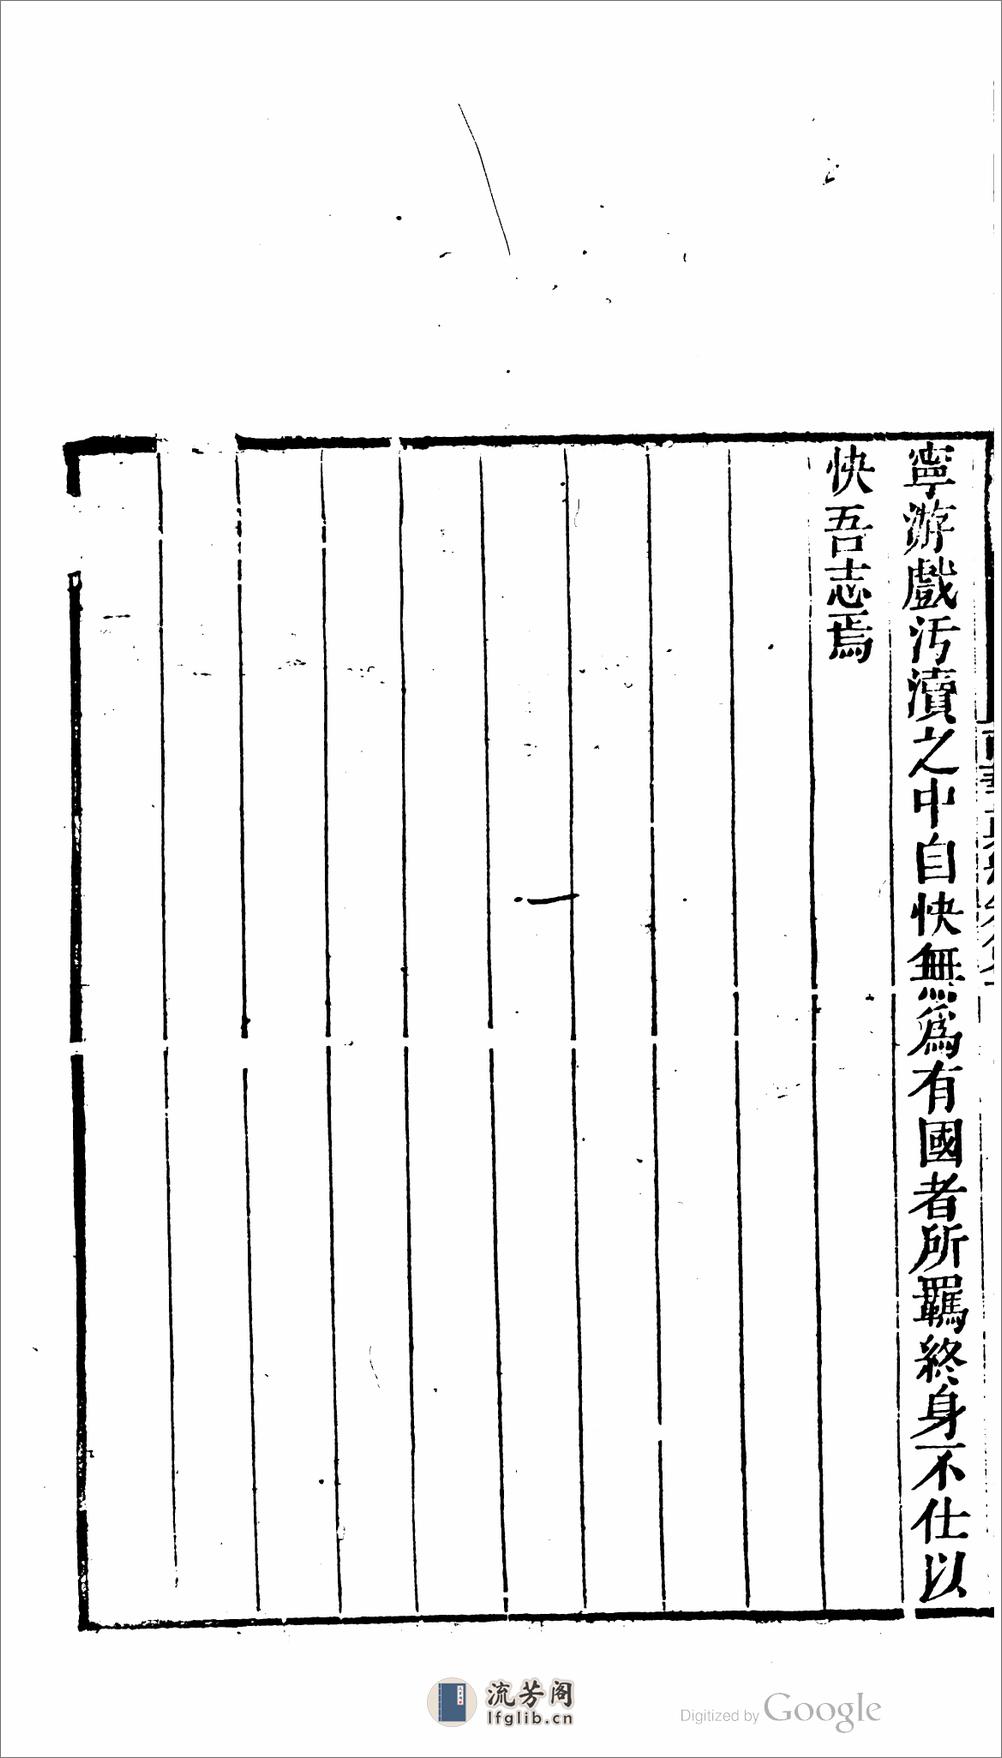 寧游戲汚瀆之中自快無爲有國者所羈終身不仕以
快吾志焉
流芳阁
lfglib.cn
Digitized by Google